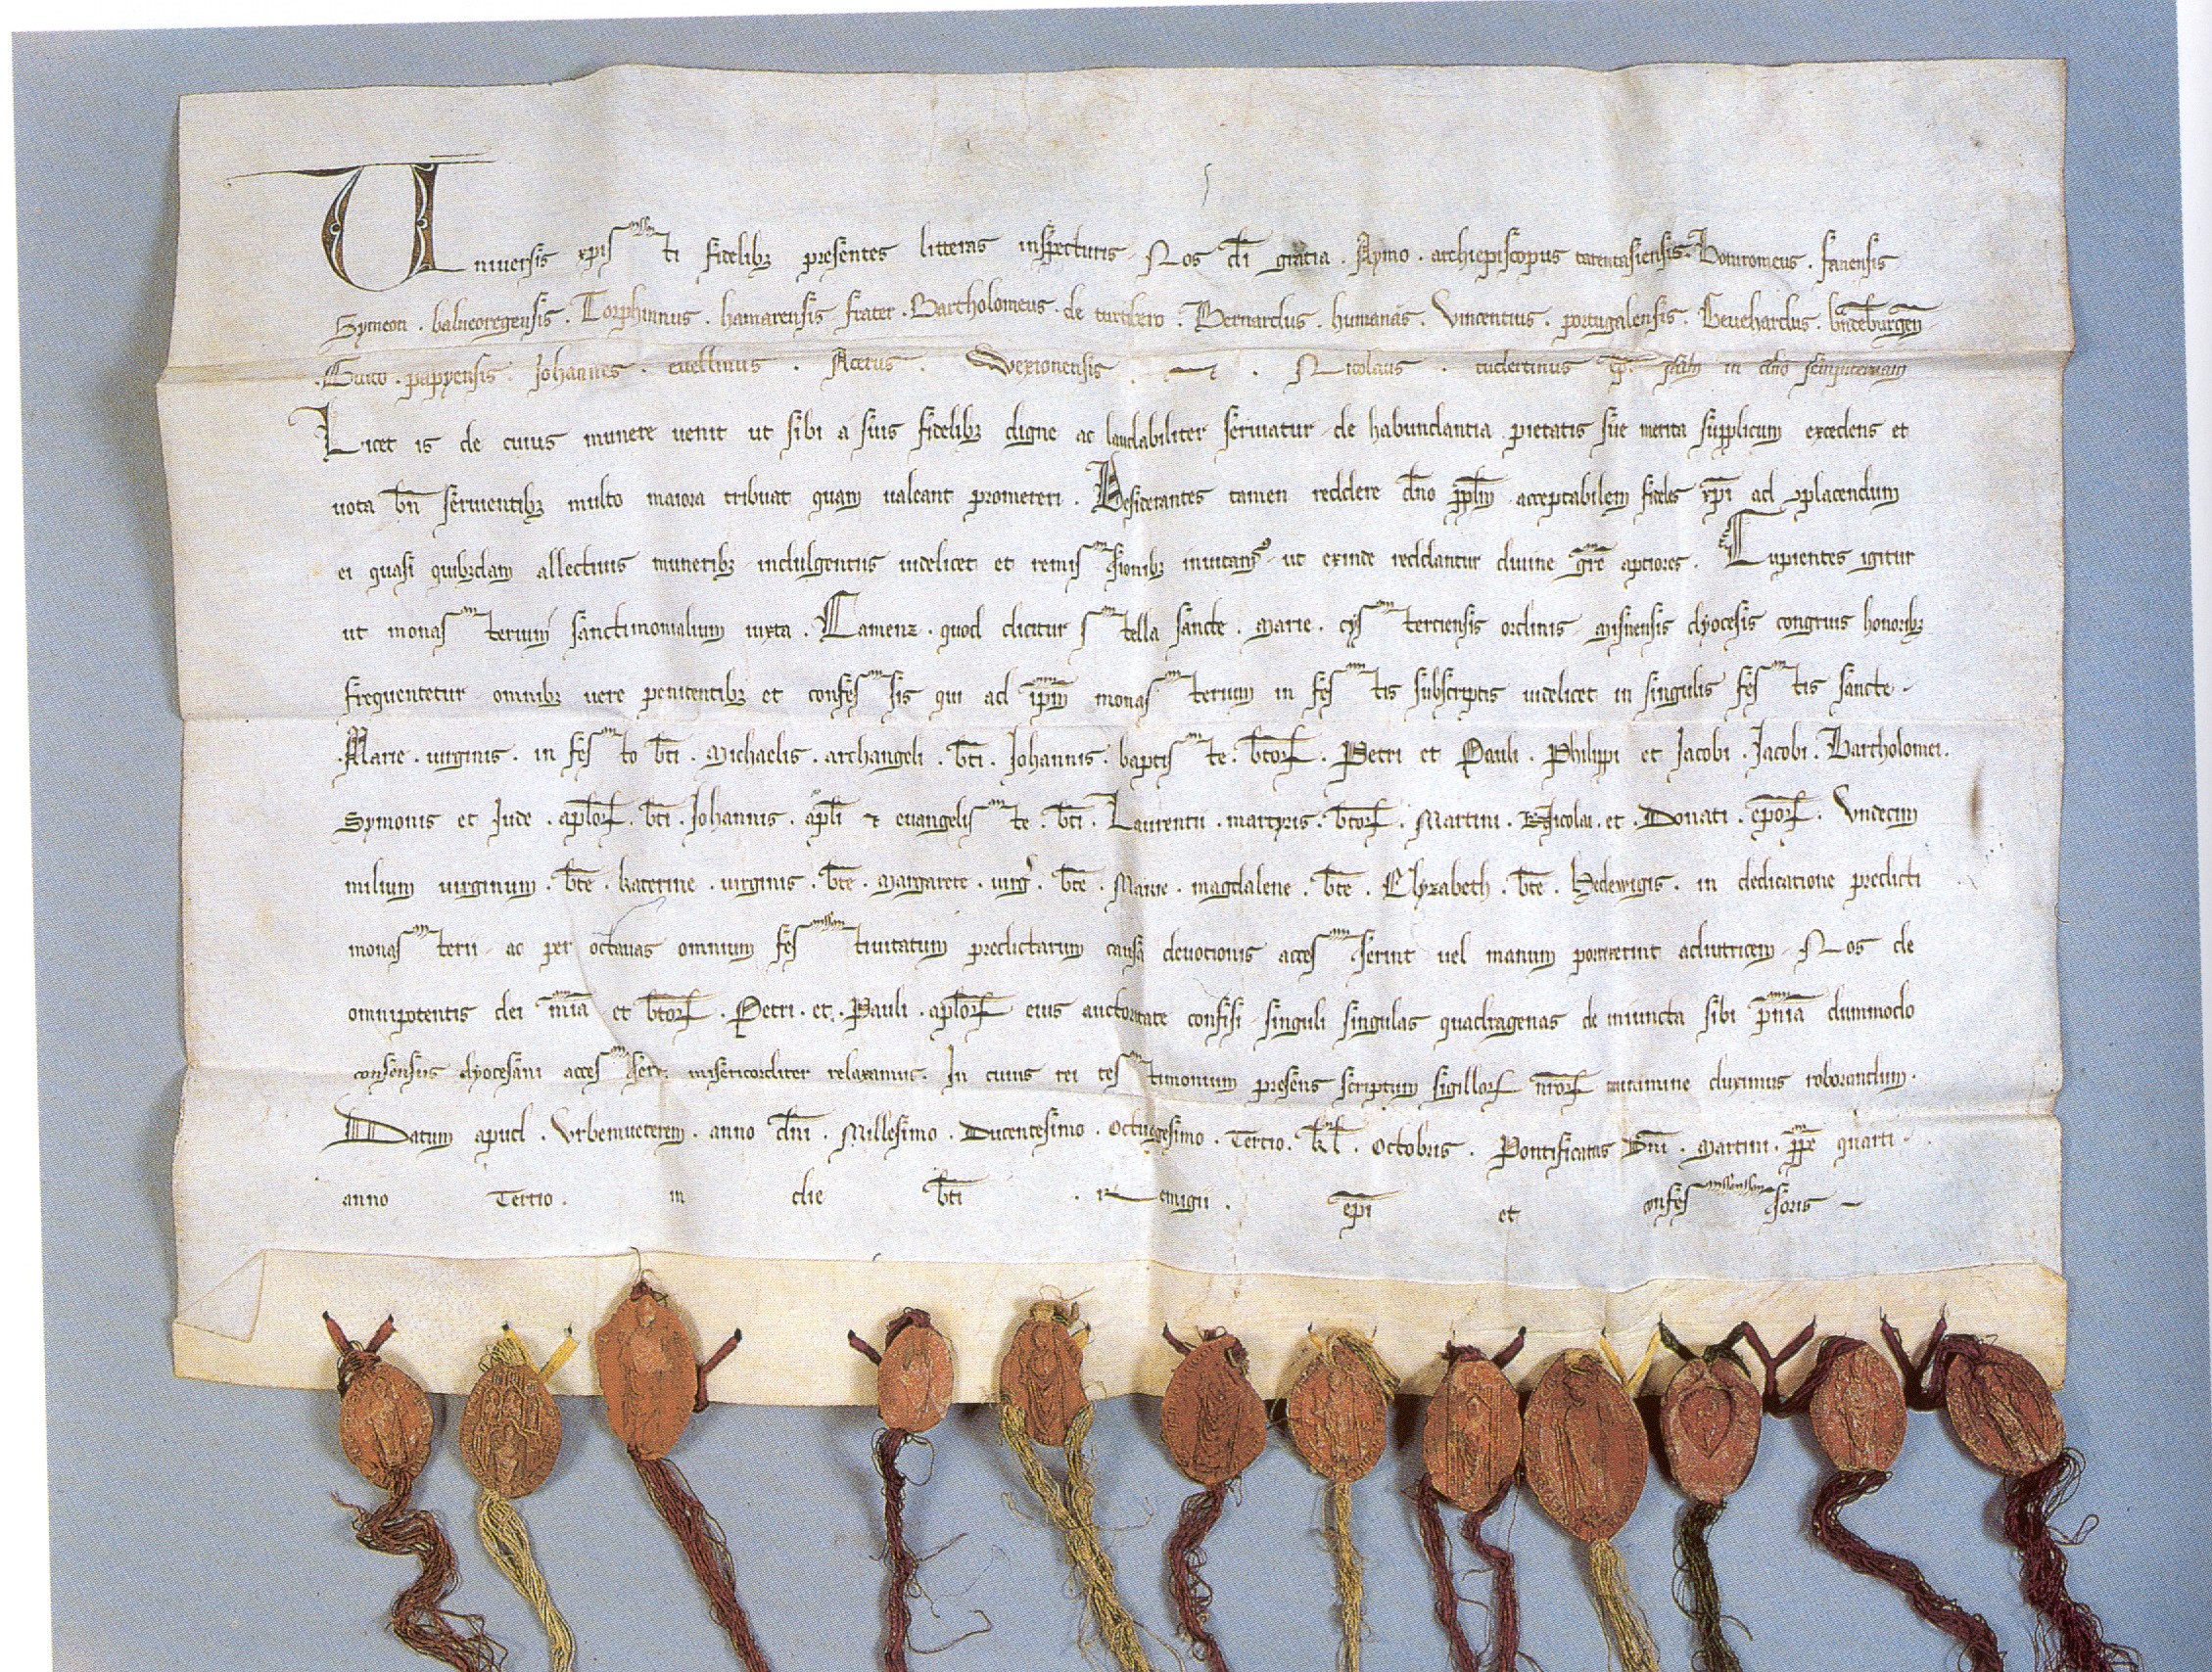 Universis xpisti fidelibz presentes litteras inspecturis Nos di gracia . Aymo . archiepiscopus tarentasiensis . Bonromeus . fanensis
Symeon . balneoregensis . Torphinnus . hamarensis frater . Bartholomeus . de Bernardus . humanas . Vincentius . portugalensis .
Guico . pappensis . Johannes . evellinus . Acerus . Wexionensis . et . Nicolaus . tudertinus . in dno sempiternam
Licet is de cuius munere venit ut sibi a suis fidelibz digne ac laudabiliter serviatur de habundantia pietatis sue merita supplicum excedens et
vota bn servientibz multo maiora tribuat quam valeant promereri . Desiderantes tamen reddere dno pplm acceptabilem fideles xpi ad placendum
ei quasi quibzdam allectivis muneribz indulgentiis videlicet et remissionibz ut exinde reddantur divine gre aptiores . Cupientes igitur
ut monasterium sanctimonialium iuxta . Camenz . quod dicitur stella sancte . Marie . cysterciensis ordinis misnensis dyocesis congruis honoribz
frequentetur omnibz vere penitentibz et confessis qui ad ipm monasterium in festis subscriptis videlicet in singulis festis sancte .
. Marie . virginis . in festo bti . Michaelis . archangeli . bti . Johannis . baptiste . btor . Petri et Pauli . Philippi et Jacobi . Jacobi . Bartholomei .
Symonis et Jude . aplor . bti . Johannis . apli et evangeliste . bti . Laurentii . martyris . btor . Martini . Nicolai . et . Donati . epor . Undecim
milium virginum . bte . katerine . virginis . bte . Margarete . virg . bte . Marie . magdalene . bte . Elyzabeth . bte . Hedewigis . in dedicatione predicti
monasterii ac per octavas omnium festivitatum predictarum causa devotionis accesserint vel manum porrexerint adiutricem Nos de
omnipotentis dei mia et btor . Petri . et . Pauli . aplor eius auctoritate confisi singuli singulas quadragenas de iniuncta sibi pnia dummodo
consensus dyocesani accesser misericorditer relaxamus . In cuius rei testimonium presens scriptum sigillor nror munimine duximus roborandum .
Datum apud . Urbemveterem . anno dni . Millesimo . Ducentesimo . Octuagesimo . Tercio . kl . Octobris . Pontificatus Dni . Martini . ppe quarti .
anno Tertio . in die bti . Remigii . epi et confessoris